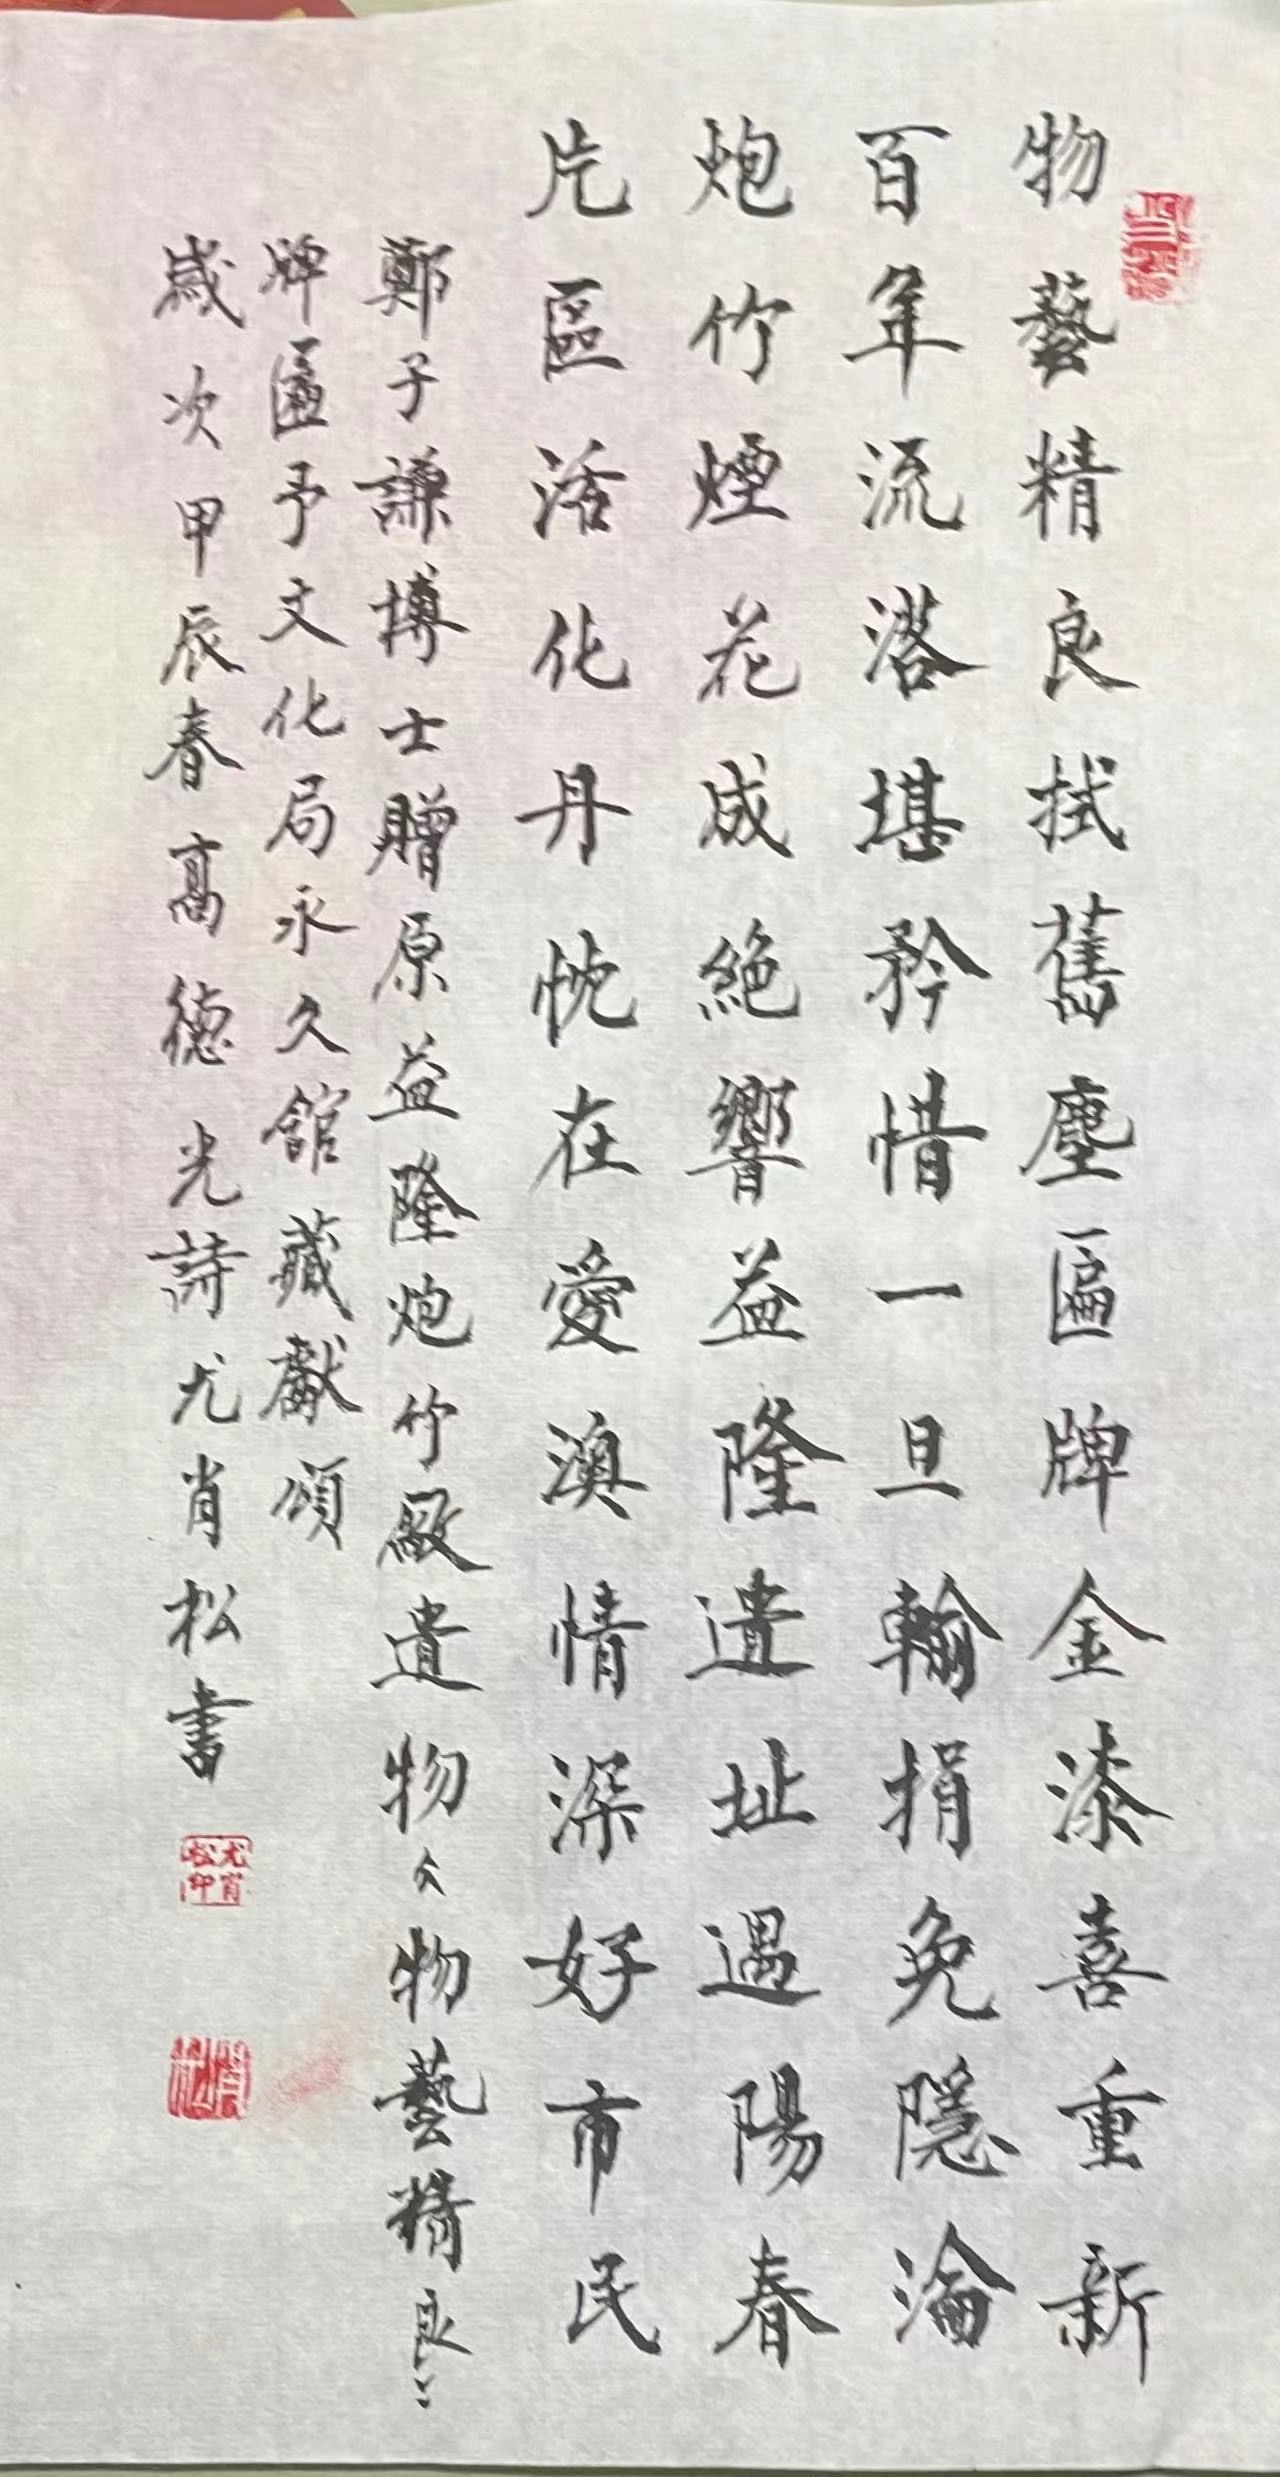 物藝精良拭舊塵匾牌金漆喜重新
百年流落堪矜惜一旦輸捐免隱淪
炮竹煙花成絕響益隆遺址遇陽春
片區活化丹忱在愛澳情深好市民
鄭子謙博士贈原益隆炮竹廠遺物々物藝精良〻
牌匾予文化局永久館藏獻頌
歲次甲辰春高德光詩尤肖松書
尤肖松印
肖松